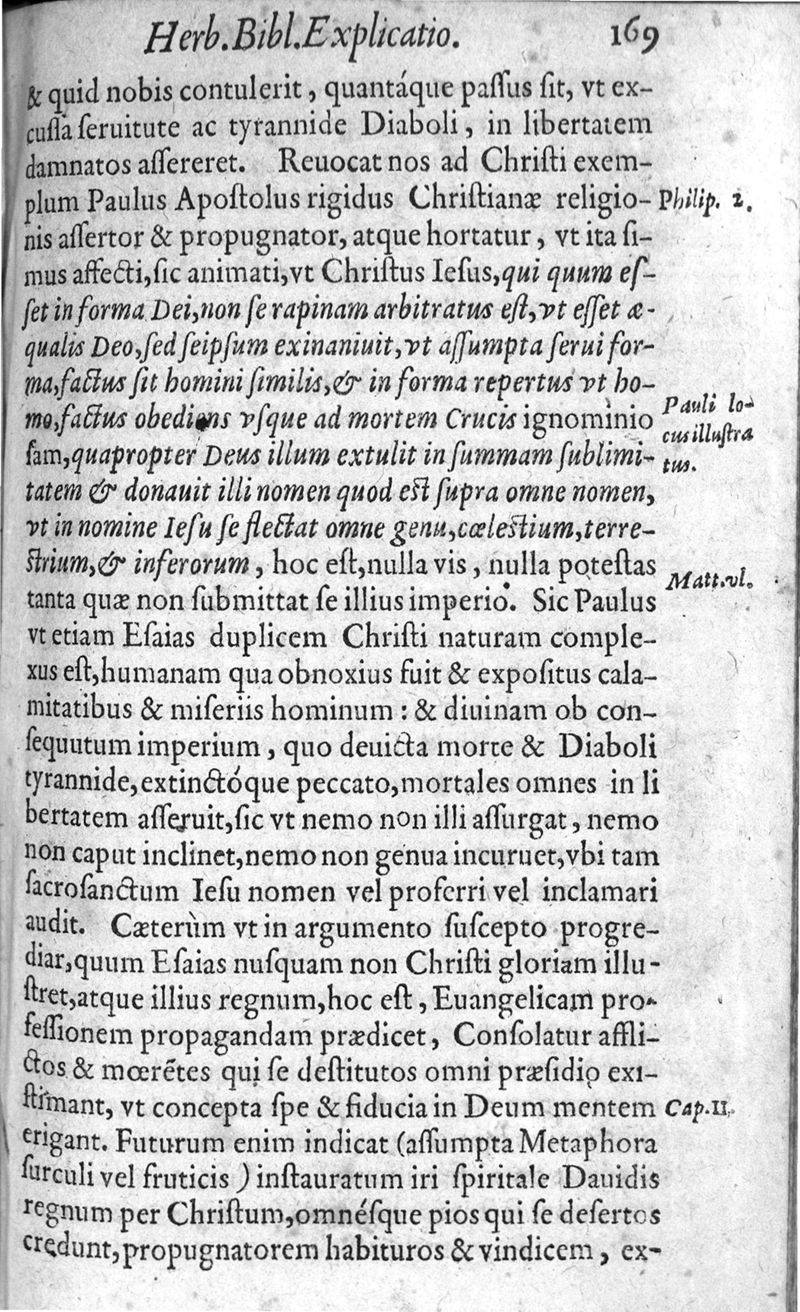 Herb.Bibl.Explicatio. 169
& quid nobis contulerit, quantáque paſſus ſit, vt ex-
cuſſa ſeruitute ac tyrannide Diaboli, in libertatem
damnatos aſſereret. Reuocat nos ad Chriſti exem-
plum Paulus Apoſtolus rigidus Chriſtianæ religio- Philip. 2.
nis aſſertor & propugnator, atque hortatur, vt ita ſi-
mus affecti,ſic animati,vt Chriſtus Ieſus,qui quum eſ-
ſet in forma Dei,non ſe rapinam arbitratus eſt,vt eſſet æ-
qualis Deo,ſed ſeipſum exinaniuit,vt aſſumpta ſerui for-
ma,factus ſit homini ſimilis,& in forma repertus vt ho-
mo,factus obediens vſque ad mortem Crucis ignominio
ſam,quapropter Deus illum extulit in ſummam ſublimi-
Pauli lo-
cus illuſtra
tus.
tatem & donauit illi nomen quod eſt ſupra omne nomen,
vt in nomine Ieſu ſe flectat omne genu,cœleſtium,terre-
ſtrium,& inferorum, hoc eſt,nulla vis, nulla poteſtas
tanta quæ non ſubmittat ſe illius imperio. Sic Paulus
Matt.vl.
vt etiam Eſaias duplicem Chriſti naturam comple-
xus eſt,humanam qua obnoxius fuit & expoſitus cala-
mitatibus & miſeriis hominum : & diuinam ob con-
ſequutum imperium, quo deuicta morte & Diaboli
tyrannide,extinctóque peccato,mortales omnes in li
bertatem aſſeruit,ſic vt nemo non illi aſſurgat, nemo
non caput inclinet,nemo non genua incuruet,vbi tam
ſacroſanctum Ieſu nomen vel proferri vel inclamari
audit. Cæterùm vt in argumento ſuſcepto progre-
diar,quum Eſaias nuſquam non Chriſti gloriam illu-
ſtret,atque illius regnum,hoc eſt, Euangelicam pro-
feſſionem propagandam prædicet, Conſolatur affli-
ctos & mœrẽtes qui ſe deſtitutos omni præſidio exi-
ſtimant, vt concepta ſpe & fiducia in Deum mentem Cap.II.
erigant. Futurum enim indicat (aſſumpta Metaphora
ſurculi vel fruticis ) inſtauratum iri ſpiritale Dauidis
regnum per Chriſtum,omnéſque pios qui ſe deſertos
credunt,propugnatorem habituros & vindicem, ex-